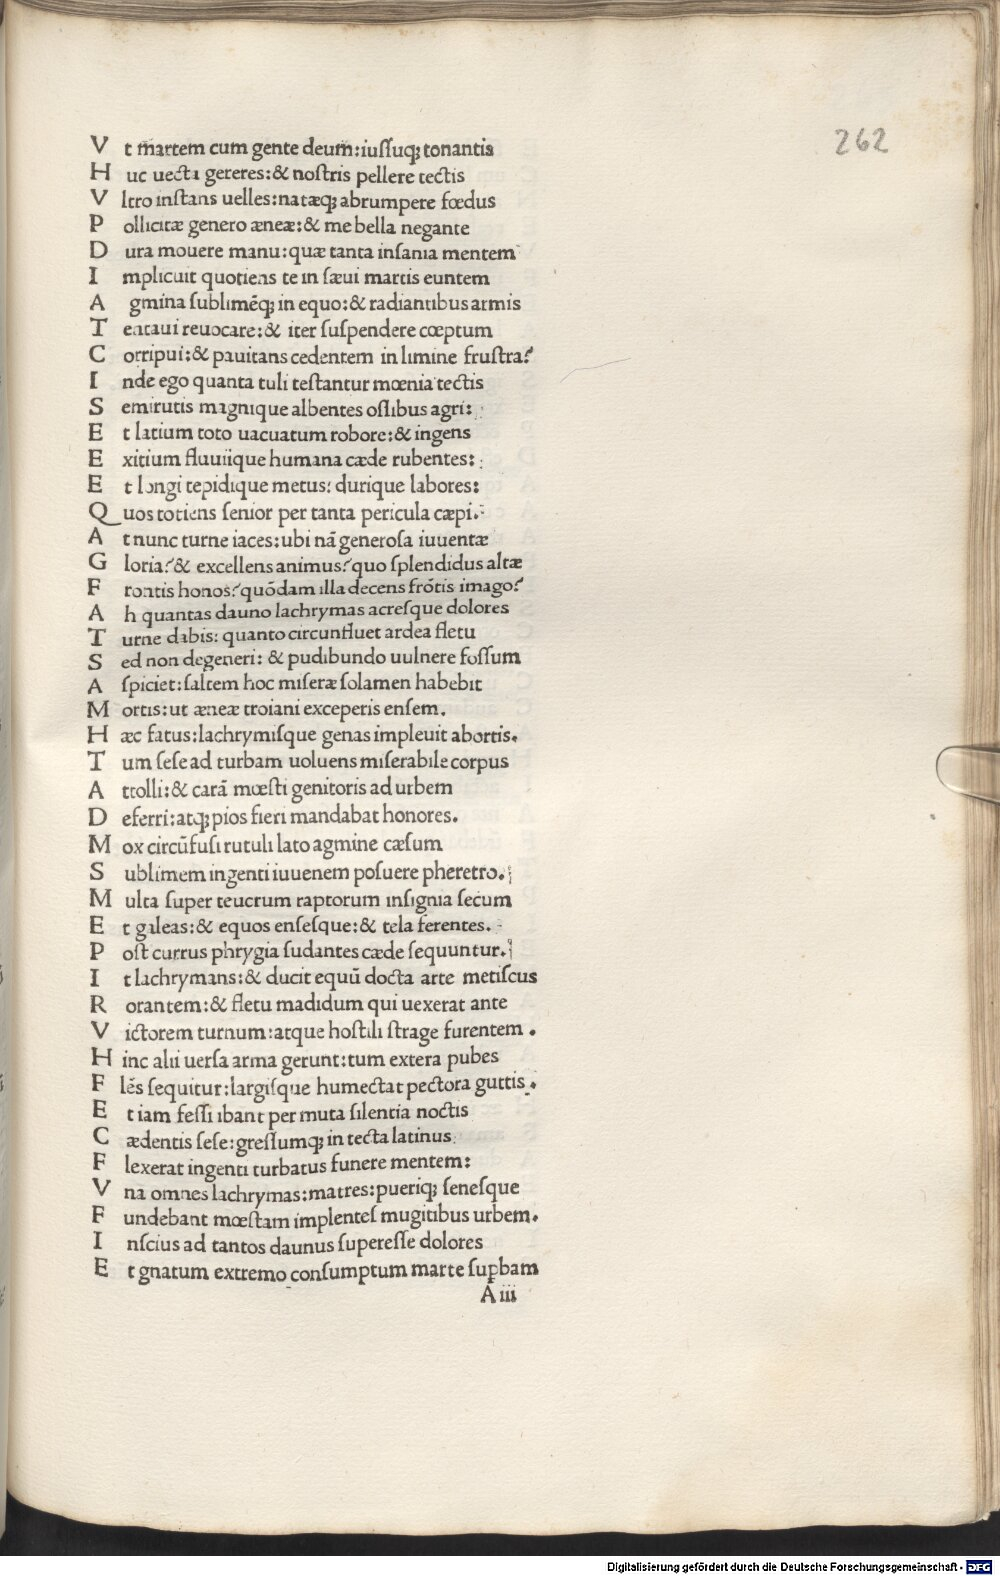 262
V t martem cum gente deum:iuſſuq; tonantis
H uc uecta gereres:& noſtris pellere tectis
V ltro inſtans uelles:natæq; abrumpere fœdus
P ollicitæ genero æneæ:& me bella negante
D ura mouere manu:quæ tanta inſania mentem
I mplicuit quotiens te in ſæui martis euntem
A gmina ſublimēq; in equo:& radiantibus armis
T entaui reuocare:& iter ſuſpendere cœptum
C orripui:& pauitans cedentem in limine fruſtra?
I nde ego quanta tuli teſtantur mœnia tectis
S emirutis magnique albentes oſſibus agri:
E t latium toto uacuatum robore:& ingens
E xitium fluuiique humana cæde rubentes:
E t longi tepidique metus: durique labores:
Q uos totiens ſenior per tanta pericula cæpi.
A t nunc turne iaces:ubi nā generoſa iuuentæ
G loria?& excellens animus?quo ſplendidus altæ
F rontis honos?quōdam illa decens frōtis imago?
A h quantas dauno lachrymas acreſque dolores
T urne dabis: quanto circunfluet ardea fletu
S ed non degeneri: & pudibundo uulnere foſſum
A ſpiciet:ſaltem hoc miſeræ ſolamen habebit
M ortis:ut æneæ troiani exceperis enſem.
H æc fatus:lachrymiſque genas impleuit abortis.
T um ſeſe ad turbam uoluens miſerabile corpus
A ttolli:& carā mœſti genitoris ad urbem
D eferri:atq; pios fieri mandabat honores.
M ox circūfuſi rutuli lato agmine cæſum
S ublimem ingenti iuuenem poſuere pheretro.
M ulta ſuper teucrum raptorum inſignia ſecum
E t galeas:& equos enſeſque:& tela ferentes.
P oſt currus phrygia ſudantes cæde ſequuntur.
I t lachrymans:& ducit equū docta arte metiſcus
R orantem:& fletu madidum qui uexerat ante
V ictorem turnum:atque hoſtili ſtrage furentem .
H inc alii uerſa arma gerunt:tum extera pubes
F lēs ſequitur:largiſque humectat pectora guttis.
E t iam feſſi ibant per muta ſilentia noctis
C ædentis ſeſe:greſſumq; in tecta latinus
F lexerat ingenti turbatus funere mentem:
V na omnes lachrymas:matres:pueriq; ſeneſque
F undebant mœſtam implenteſ mugitibus urbem.
I nſcius ad tantos daunus ſupereſſe dolores
E t gnatum extremo conſumptum marte ſuꝑbam
A iii
Digitalisierung gefördert durch die Deutsche Forschungsgemeinschaft - DFG